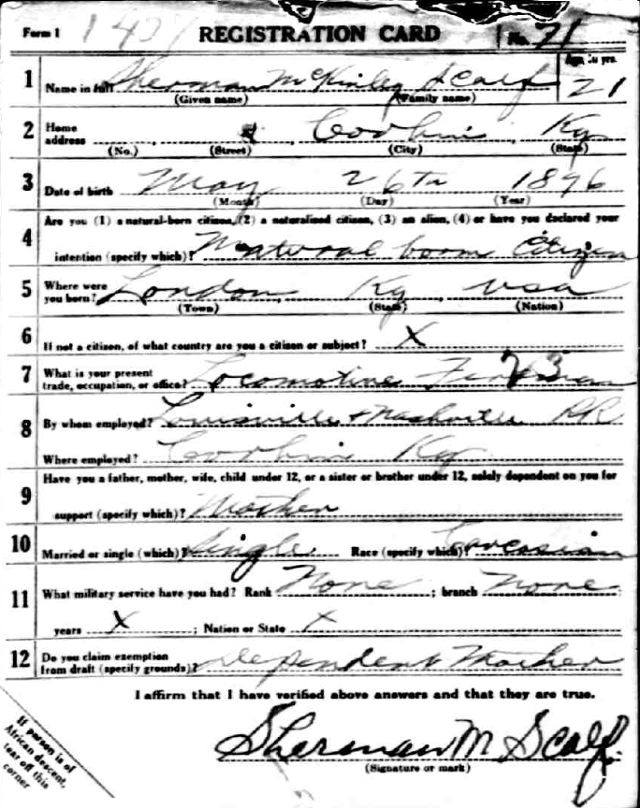 Form 1 REGISTRATION CARD No. 71
Age, in yrs.
1 Name in full Sherman McKinley Scalf 21
(Given name) (Family name)
2 Home address Corbin Ky
(No.) (Street) (City) (State)
3 Date of birth May 26th 1896
(Month) (Day) (Year)
4 Are you (1) a natural-born citizen, (2) a naturalized citizen, (3) an alien, (4) or have you declared your
intention (specify which)? Natural born Citizen
5 Where were you born? London, Ky, USA
(Town) (State) (Nation)
6 If not a citizen, of what country are you a citizen or subject? X
7 What is your present trade, occupation, or office? Locomotive Fireman 23
8 By whom employed? Louisville + Nashville RR
Where employed? Corbin Ky
9 Have you a father, mother, wife, child under 12, or a sister or brother under 12, solely dependent on you for
support (specify which)? Mother
10 Married or single (which)? Single Race (specify which)? Caucasian
11 What military service have you had? Rank None ; branch None ;
years X ; Nation or State X
12 Do you claim exemption from draft (specify grounds)? Dependent Mother
I affirm that I have verified above answers and that they are true.
Sherman M Scalf.
(Signature or mark)
If person is of
African descent,
tear off this
corner